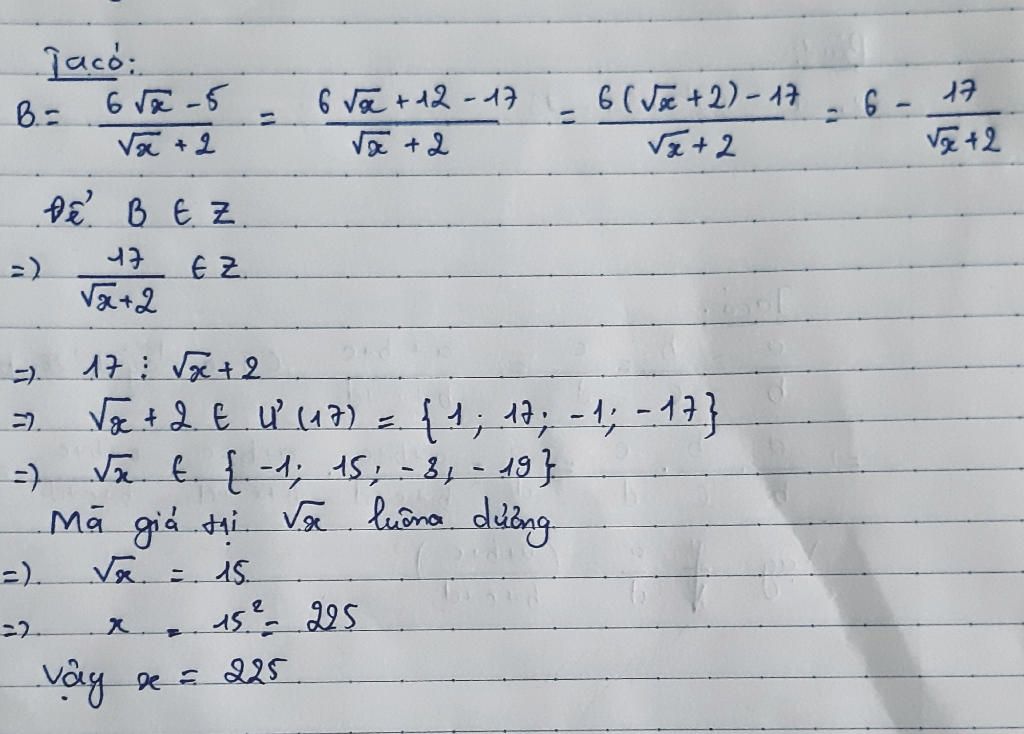 Ta có:
B = (6√x - 5)/(√x + 2) = (6√x + 12 - 17)/(√x + 2) = (6(√x + 2) - 17)/(√x + 2) = 6 - 17/(√x + 2)
Để B ∈ Z
=> 17/(√x + 2) ∈ Z
=> 17 ⋮ √x + 2
=> √x + 2 ∈ Ư(17) = {1; 17; -1; -17}
=> √x ∈ {-1; 15; -3; -19}
Mà giá trị √x luôn dương
=> √x = 15
=> x = 15² = 225
Vậy x = 225